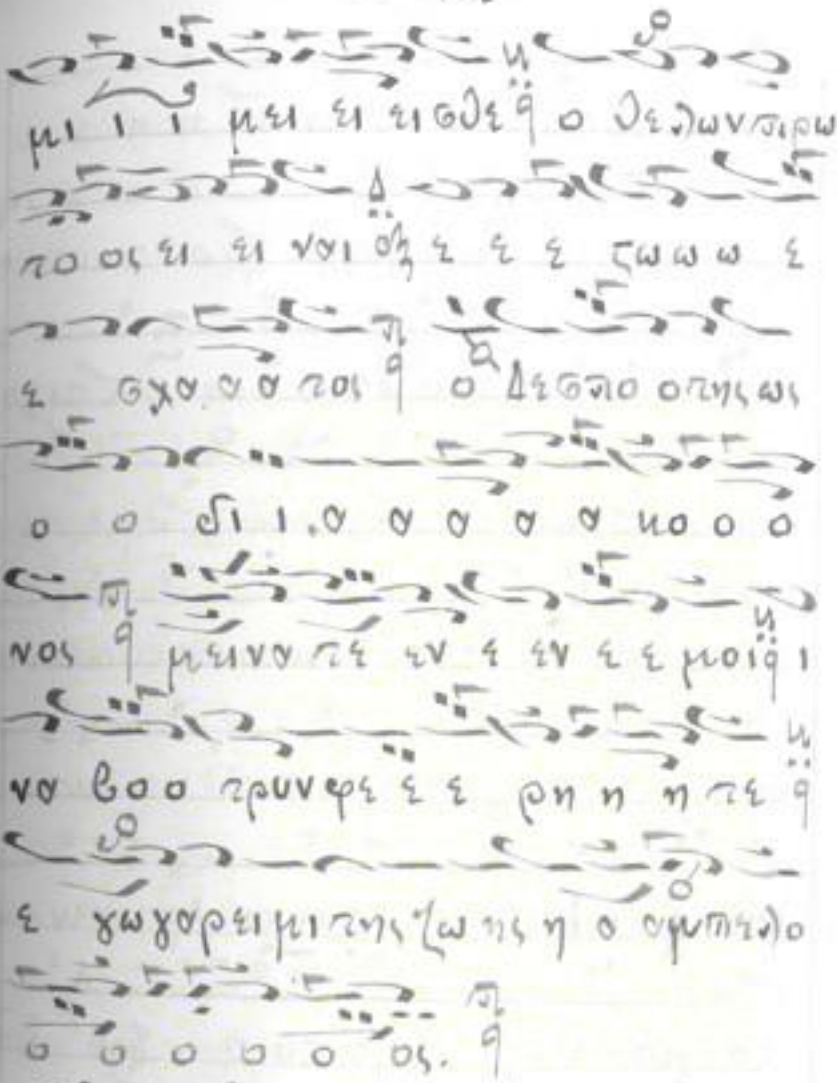 μι ι ι μει ει εισθε ο θελων πρω
το ος ει ει ναι ε ε ε ζω ω ω ε
ε σχα α α τος ο Δεσπο οτης ως
ο ο δι ι α α α α α κο ο ο
νος μεινα τε εν ε εν ε ε μοι ι
να βο ο τρυν φε ε ε ρη η η τε
ε γω γαρ ειμι της ζω ης η ο αμπελο
ο ο ο ο ο ος.